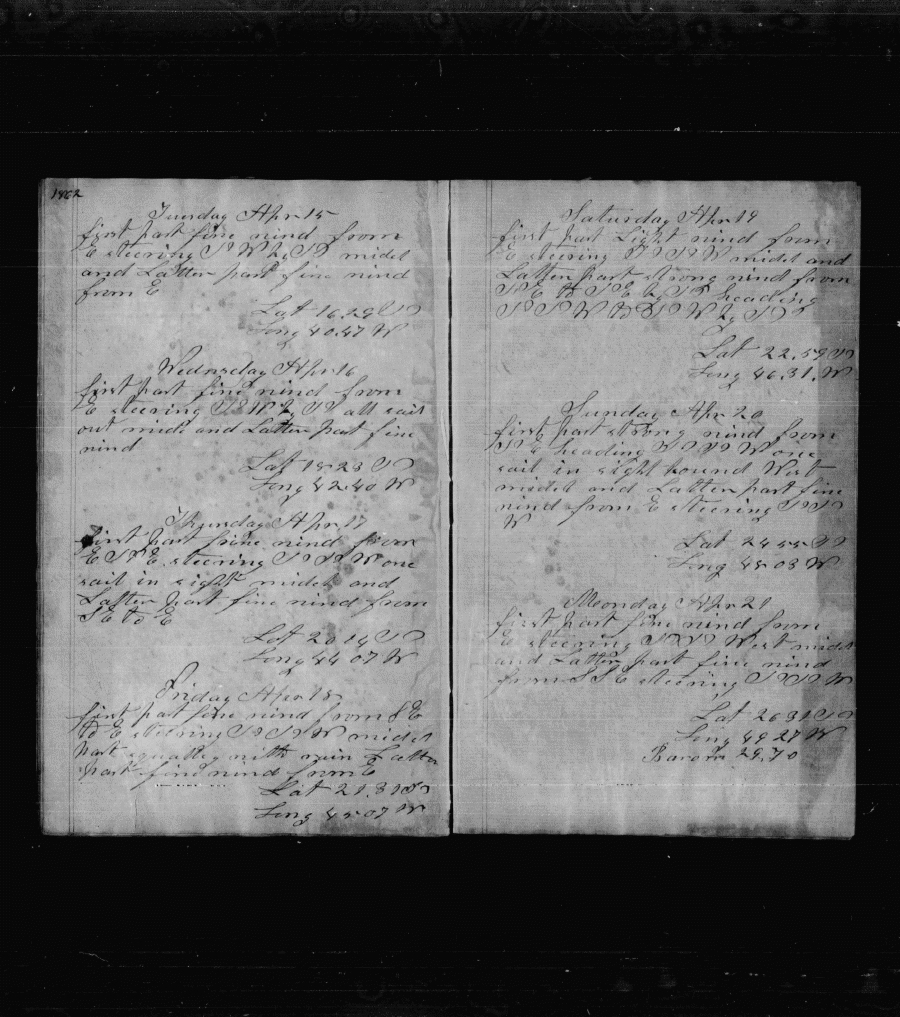 1862
Tuesday Apr 15
first part fine wind from
E steering S W by S midel
and Latter part fine wind
from E
Lat 16.29 S
Long 40.47 W
Wednesday Apr 16
first part fine wind from
E steering S W by S all sail
out midel and Latter part fine
wind
Lat 18 23 S
Long 42.40 W
Thursday Apr 17
first part fine wind from
E S E steering S S W one
sail in sight midel and
Latter part fine wind from
S E to E
Lat 20 14 S
Long 44 07 W
Friday Apr 18
first part fine wind from S E
to E steering S S W midel
part squalley with rain Latter
part fine wind from E
Lat 21.31 S
Long 45 07 W
Saturday Apr 19
first part Light wind from
E steering S S W midel and
Latter part strong wind from
S E to S E by S heading
S S W to S W by S
Lat 22.59 S
Long 46.31. W
Sunday Apr 20
first part strong wind from
S E heading W S W one
sail in sight bound West
midel and Latter part fine
wind from E steering S S
W
Lat 24 55 S
Long 48 03 W
Monday Apr 21
first part fine wind from
E steering S S West midel
and Latter part fine wind
from S S E steering S S W
Lat 26 31 S
Long 49 27 W
Barom 29.70